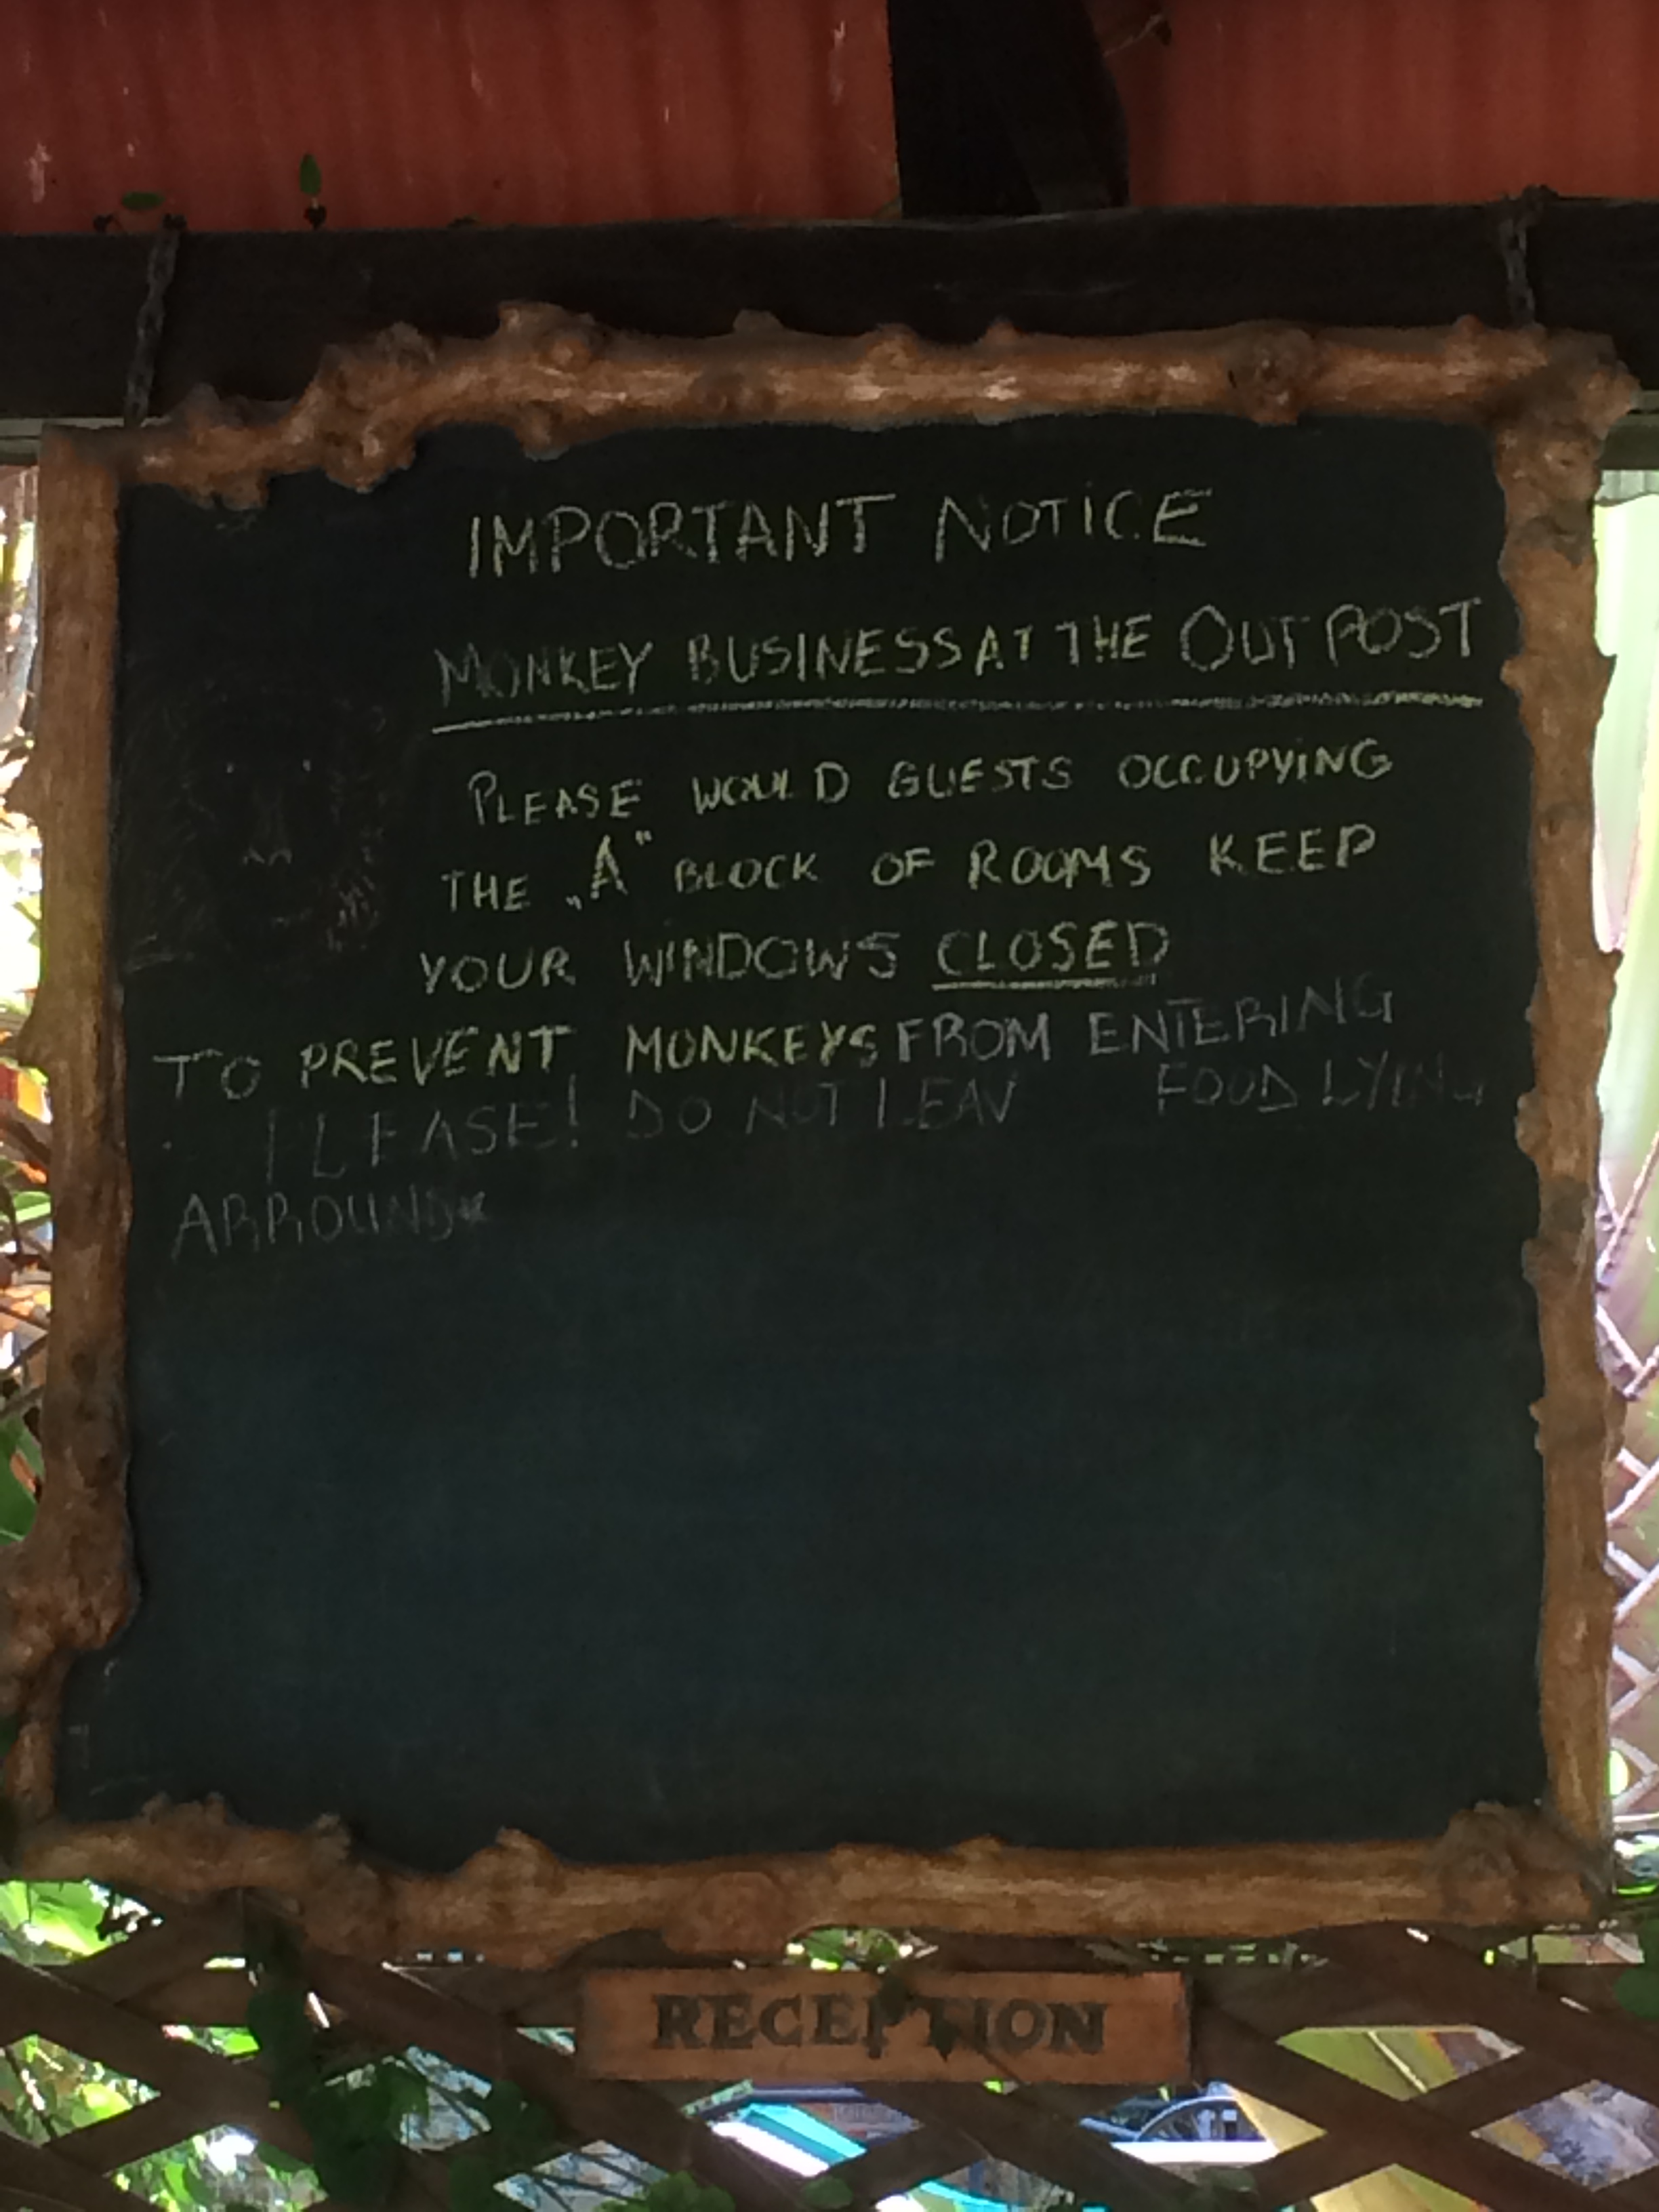 IMPORTANT NOTICE
MONKEY BUSINESS AT THE OUTPOST
PLEASE WOULD GUESTS OCCUPYING
THE „A" BLOCK OF ROOMS KEEP
YOUR WINDOWS CLOSED
TO PREVENT MONKEYS FROM ENTERING
PLEASE! DO NOT LEAV FOOD LYING
ARROUND
RECEPTION